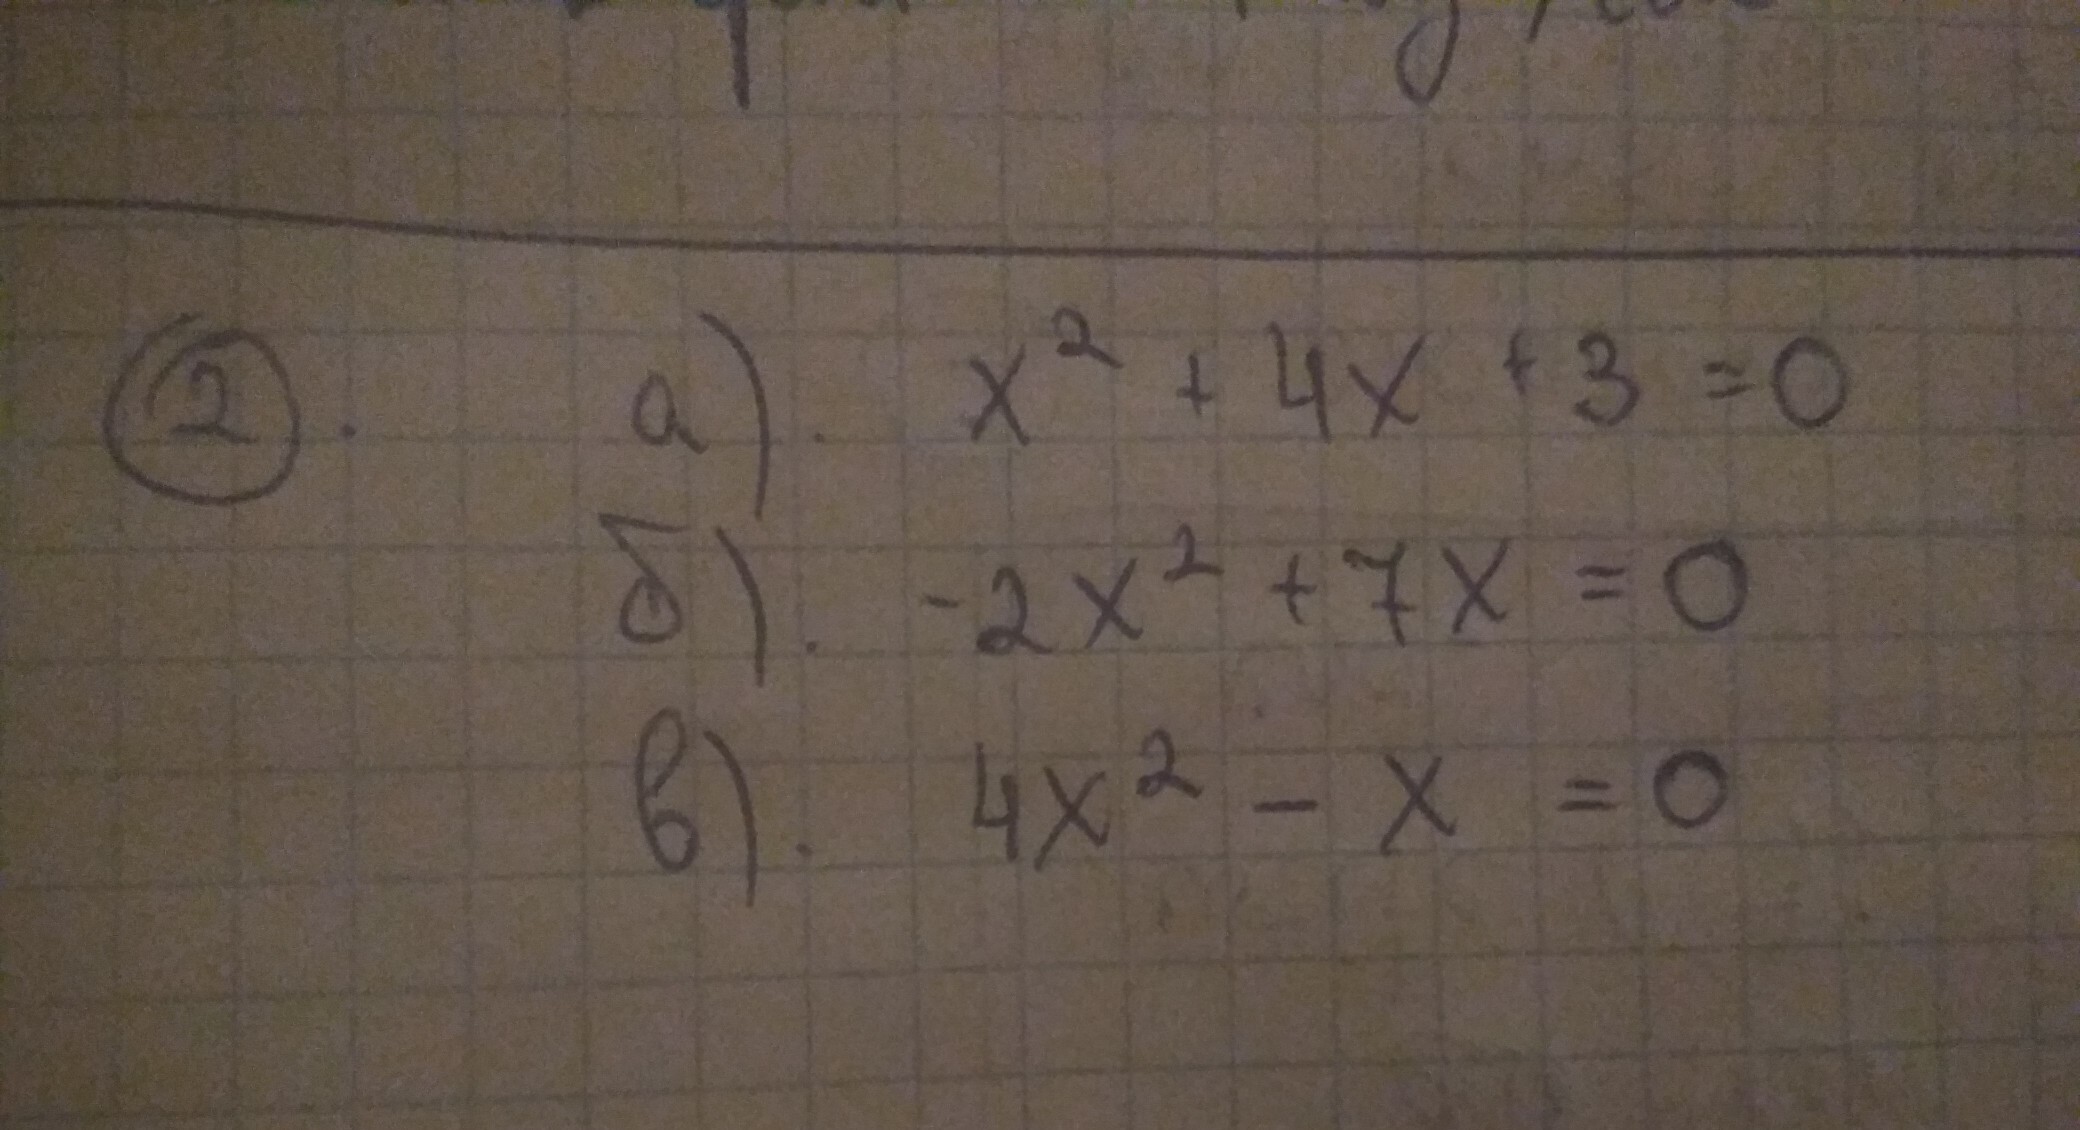 2. а). x² + 4x + 3 = 0
б). -2x² + 7x = 0
в). 4x² - x = 0